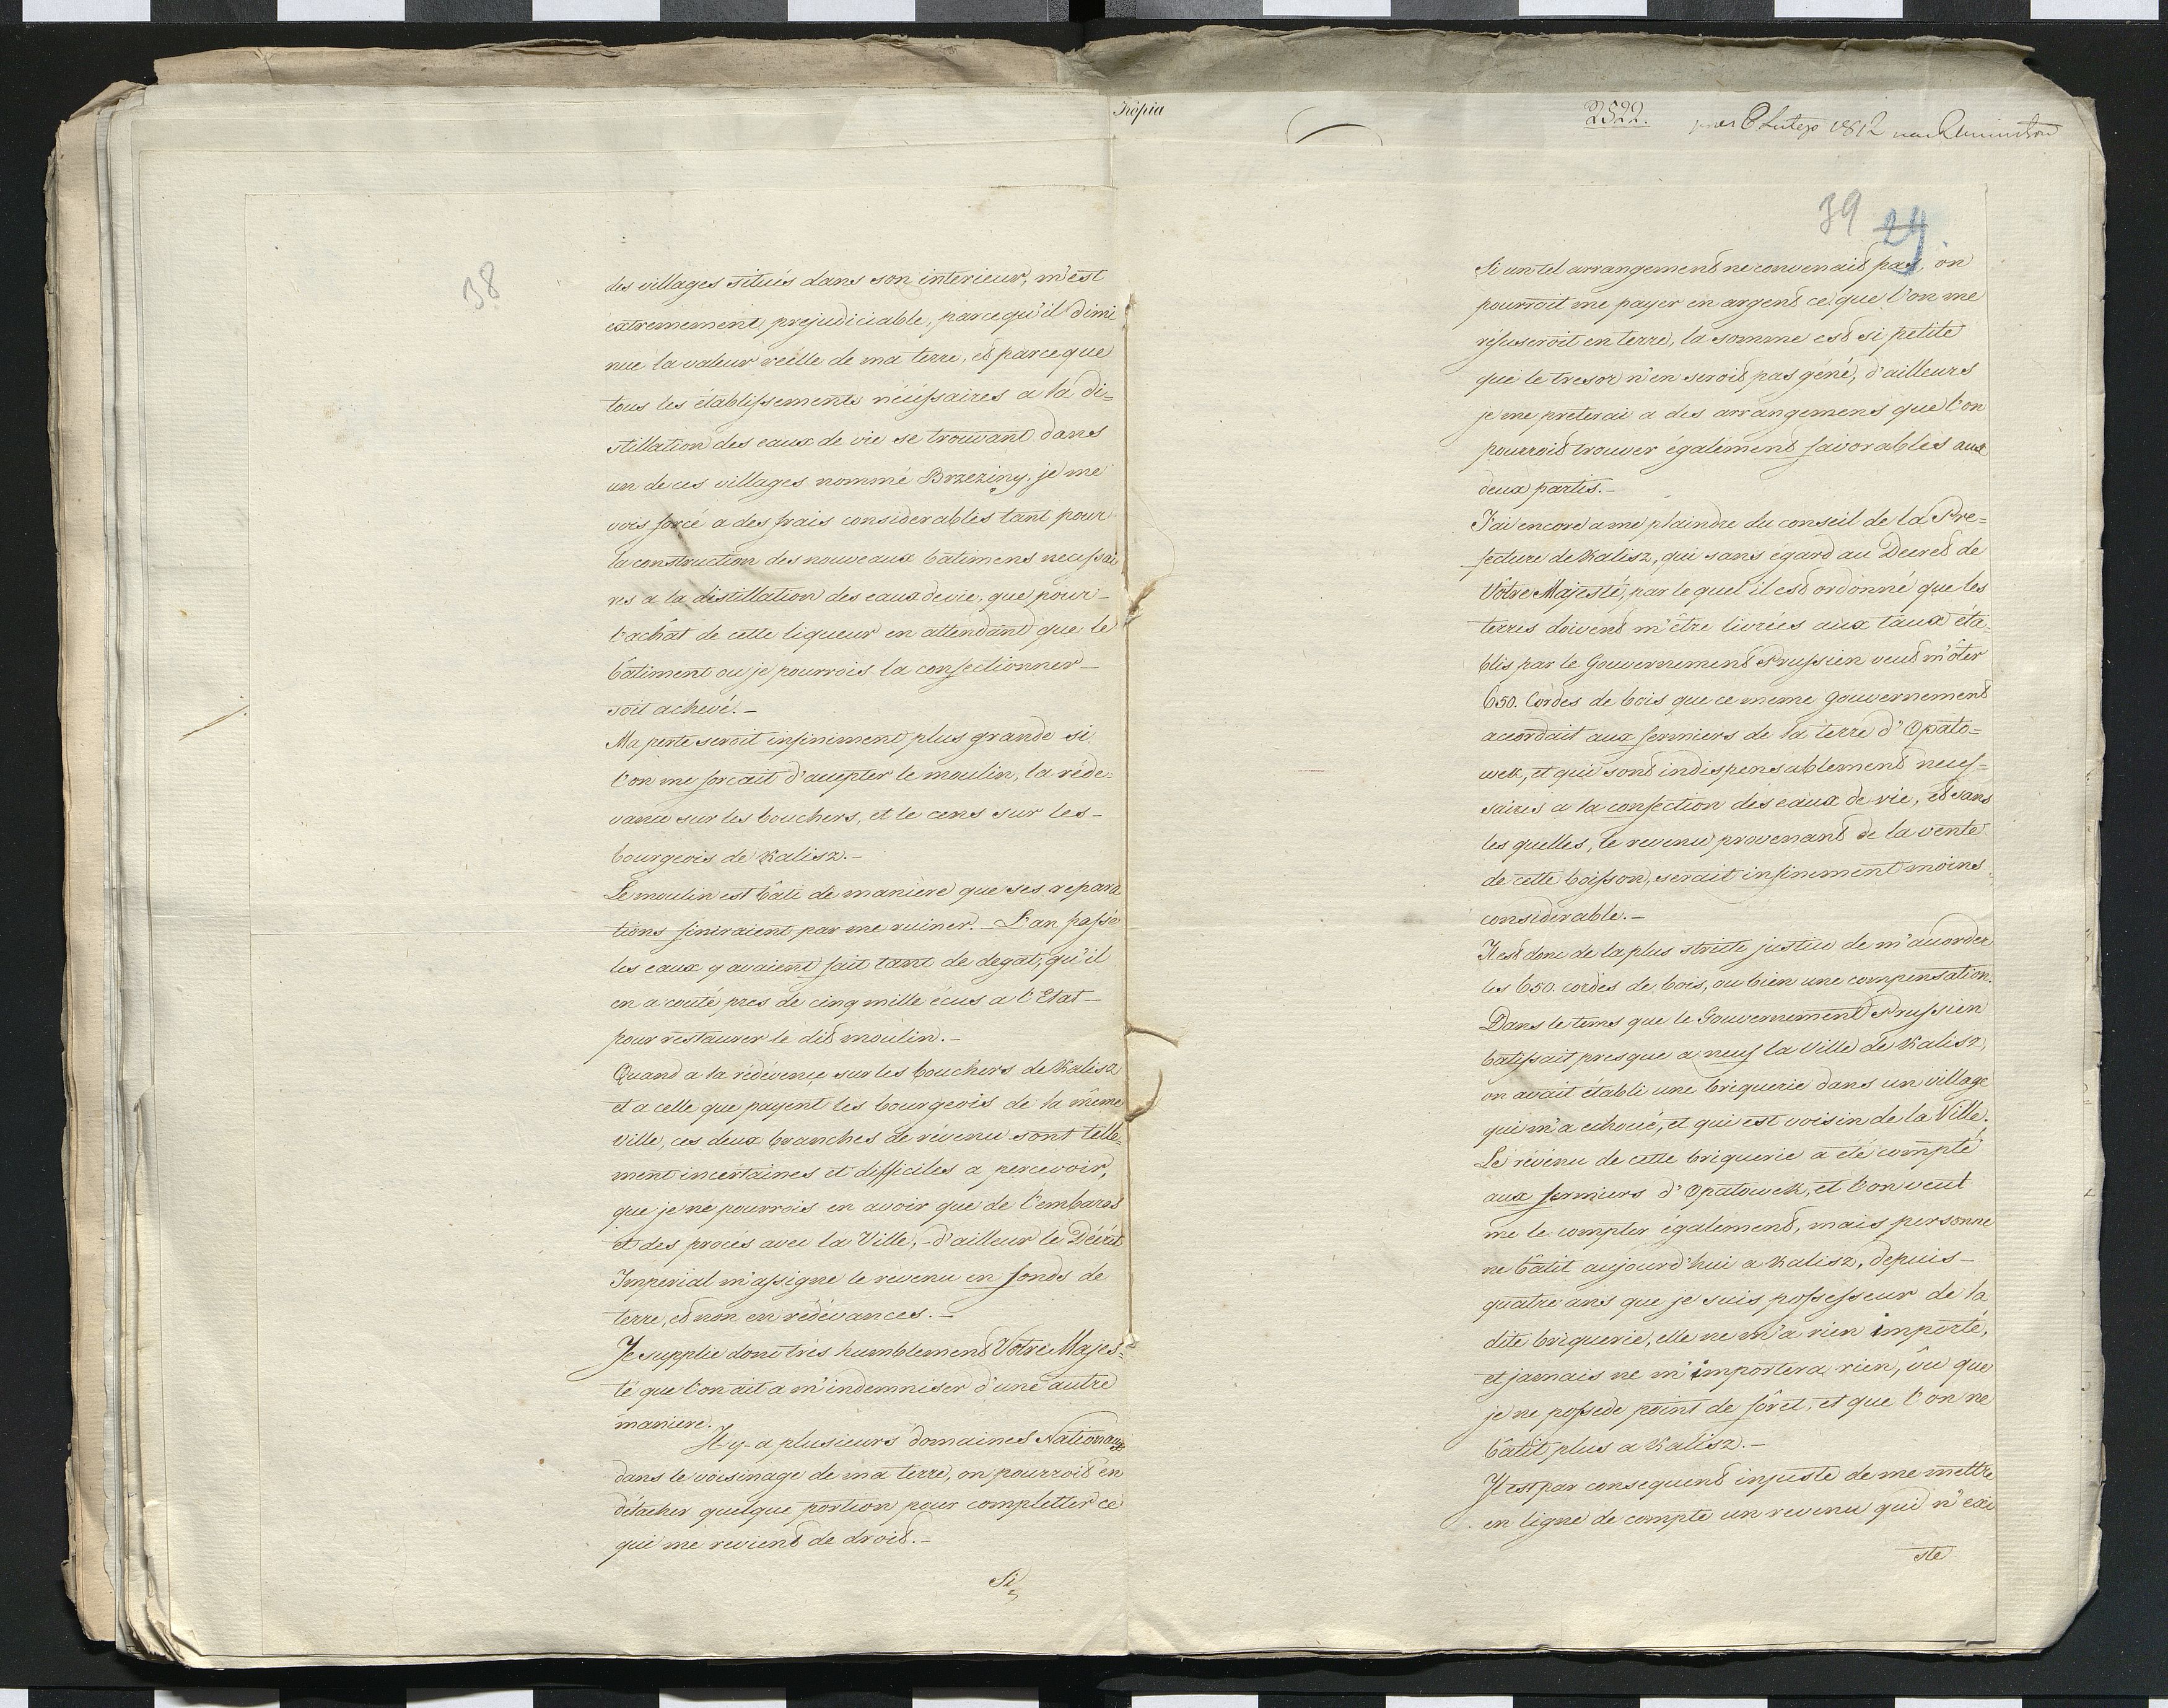 38
des villages situés dans son interieur, m'est
extremement prejudiciable, parcequ'il dimi
nue la valeur réelle de ma terre, et parceque
tous les établissements nécéssaires a la di=
stillation des eaux de vie se trouvant dans
un de ces villages nommé Brzeziny. je me
vois forcé a des frais considerables tant pour
la construction des nouveaux bâtimens necessai
res a la distillation des eaux de vie, que pour-
l'achât de cette liqueur en attendant que le
bâtiment ou je pourrois la confectionner-
soit achevé.-
Ma perte seroit infiniment plus grande si
l'on me forcait d'accepter le moulin, la réde=
vance sur les bouchers, et le cens sur les-
bourgeois de Kalisz.-
Le moulin est bâti de maniere que ses repara
tions finiraient par me ruiner.- L'an passé
les eaux y avaient fait tant de degat, qu'il
en a couté pres de cinq mille écus a l'Etat-
pour restaurer le dit moulin.-
Quand a la rédévence sur les bouchers de Kalisz
et a celle que payent les bourgeois de la même
ville, ces deux branches de révenu sont telle=
ment incertaines et difficiles a percevoir,
que je ne pourrois en avoir que de l'embaras
et des procés avec la Ville,- d'ailleur le Décrét
Imperial m'assigne le révenu en fonds de
terre, et non en rédévances.-
Je supplie donc trés humblement Votre Majes=
té que l'on ait a m'indemniser d'une autre
maniere.
Il-y-a plusieurs domaines Nationaux
dans le voisinage de ma terre, on pourroit en
détacher quelque portion pour completter ce
qui me revient de droit.-
Si
Kopia
2522.
8 Lutego 1812
39 24
Si un tel arrangement ne convenait pas, on
pourroit me payer en argent ce que l'on me
réfuseroit en terre, la somme est si petite
que le tresor n'en seroit pas géné, d'ailleurs
je me preterai a des arrangemens que l'on
pourroit trouver également favorables aux
deux partis.-
J'ai encore a me plaindre du conseil de la Pre=
fecture de Kalisz, qui sans egard au Decret de
Vôtre Majesté, par le quel il est ordonné que les
terres doivent m'être livrées aux taux éta=
blis par le Gouvernement Prussien veut m'ôter
650. Cordes de bois que ce meme gouvernement
accordait aux fermiers de la terre d'Opato=
wek, et qui sont indispensablement neces=
saires a la confection des eaux de vie, et sans
les quelles, le revenu provenant de la vente
de cette boisson, serait infiniment moins
considerable.-
Il est donc de la plus stricte justice de m'accorder
les 650. cordes de bois, ou bien une compensation.
Dans le tems que le Gouvernement Prussien
batissait presque a neuf la Ville de Kalisz,
on avait établi une briquerie dans un village
qui m'a echoué, et qui est voisin de la Ville.
Le révenu de cette briquerie a été compté
aux fermiers d'Opatowek, et l'on veut
me le compter également, mais personne
ne bâtit aujourd'hui a Kalisz, depuis-
quatre ans que je suis possesseur de la
dite briquerie, elle ne m'a rien importé,
et jamais ne m'importera rien, vu que
je ne possede point de fôret, et que l'on ne
bâtit plus a Kalisz.-
Il est par consequent injuste de me mettre
en ligne de compte un revenu qui n'exi
ste